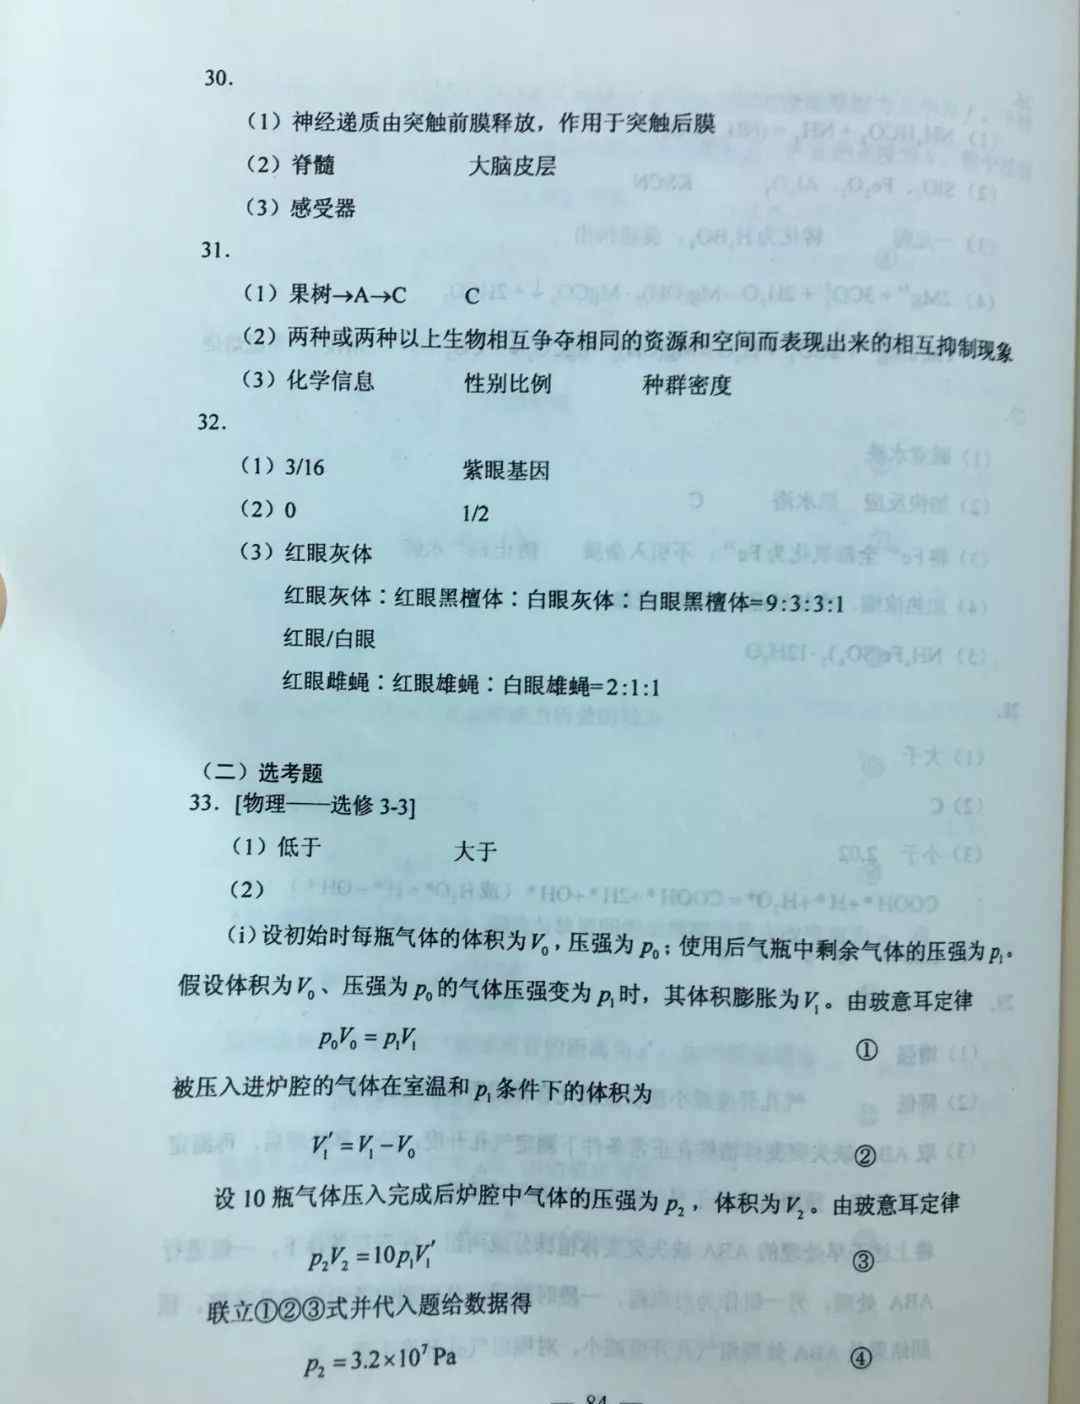 30.
（1）神经递质由突触前膜释放，作用于突触后膜
（2）脊髓 大脑皮层
（3）感受器
31.
（1）果树→A→C C
（2）两种或两种以上生物相互争夺相同的资源和空间而表现出来的相互抑制现象
（3）化学信息 性别比例 种群密度
32.
（1）3/16 紫眼基因
（2）0 1/2
（3）红眼灰体
红眼灰体∶红眼黑檀体∶白眼灰体∶白眼黑檀体=9∶3∶3∶1
红眼/白眼
红眼雌蝇∶红眼雄蝇∶白眼雄蝇=2∶1∶1
（二）选考题
33. [物理——选修 3-3]
（1）低于 大于
（2）
（i）设初始时每瓶气体的体积为V₀，压强为 p₀；使用后气瓶中剩余气体的压强为 p₁。
假设体积为V₀、压强为 p₀的气体压强变为 p₁时，其体积膨胀为V₁。由玻意耳定律
p₀V₀ = p₁V₁ ①
被压入进炉腔的气体在室温和 p₁条件下的体积为
V₁′ = V₁ − V₀ ②
设 10 瓶气体压入完成后炉腔中气体的压强为 p₂，体积为V₂。由玻意耳定律
p₂V₂ = 10p₁V₁′ ③
联立①②③式并代入题给数据得
p₂ = 3.2×10⁷ Pa ④
— 84 —